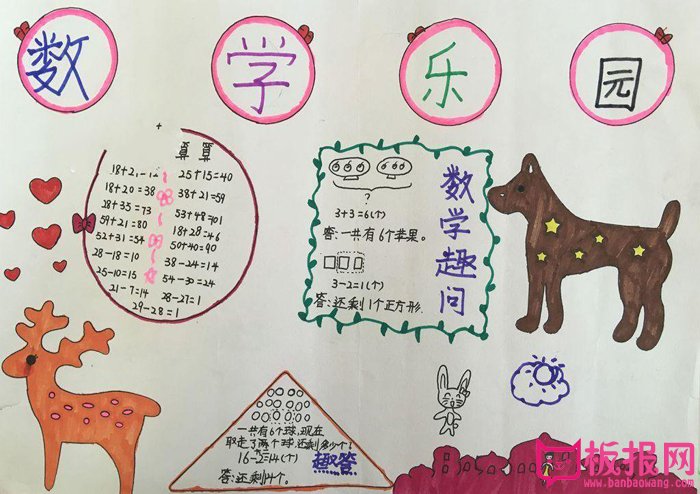 数 学 乐 园
算 算
25+15=40
18+20=38
38+21=59
28+35=73
53+48=101
59+21=80
18+28=46
52+31=54
50+40=90
28-18=10
38-24=14
25-10=15
54-30=24
21-7=14
28-27=1
29-28=1
?
3+3=6(个)
答:一共有6个苹果。
3-2=1(个)
答:还剩1个正方形.
数学趣问
一共有16个球,现在
取走了两个球,还剩多少个?
16-2=14(个)
趣答
答:还剩14个.
板报网
www.banbaowang.com